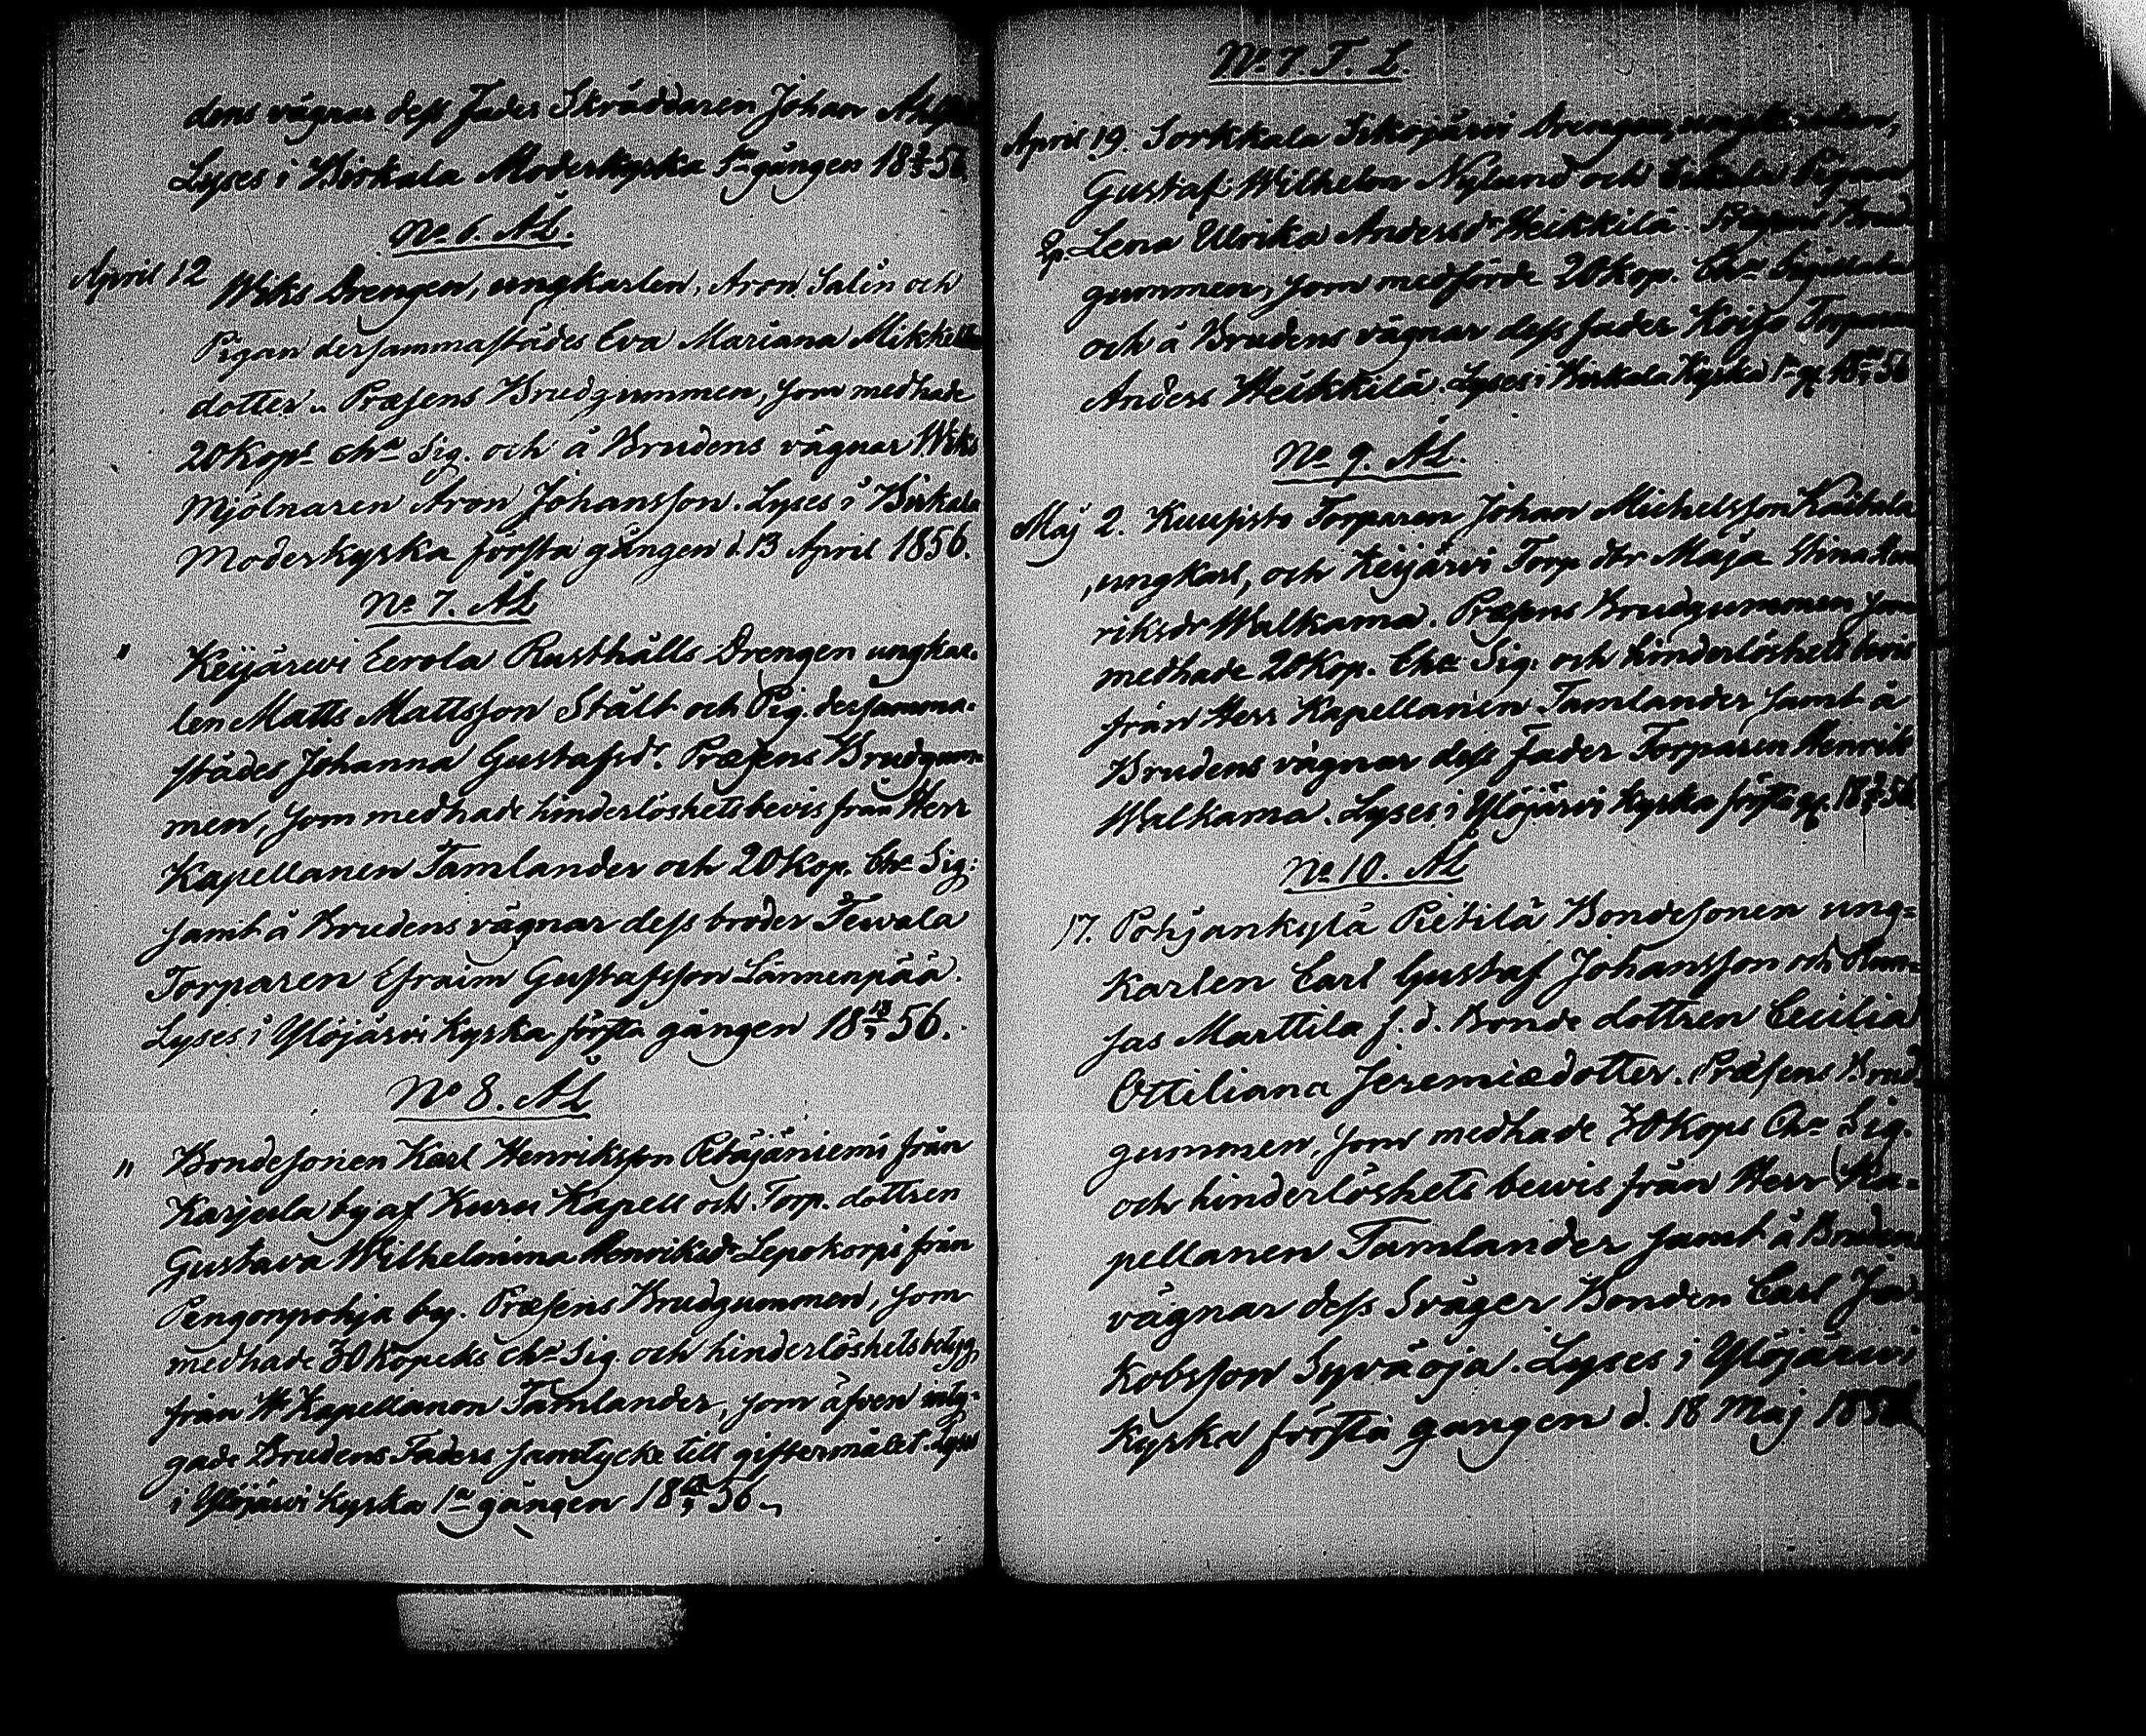 dens vägnar dess Fader Skräddaren Johan
Lyses i Birkala Moderkyrka 1sta gången 18 56.
No 6. ÄL.
April 12 Wiks Drengen, ungkarlen, Aron Salin och
Pigan dersammastädes Eva Mariana Mikkels
dotter. Præsens Brudgummen, som medhade
20 Kops cha Sig. och å Brudens vägnar Wiks
Mjölnaren Aron Johansson. Lyses i Birkala
Moderkyrka första gången d. 13 April 1856.
No 7. ÄL
" Keijärvi Eerola Rusthålls Drengen ungkar-
len Matts Mattsson Stålt och Pig. dersamma-
städes Johanna Gustafsdr. Præsens Brudgum-
men, som medhade hinderlöshetsbevis från Herr
Kapellanen Tamlander och 20 Kop. Cha Sig:
samt å Brudens vägnar dess broder Tewala
Torparen Efraim Gustafsson Länmenpää.
Lyses i Ylöjärvi kyrka första gången 18 13/4 56.
No 8. ÄL
" Bondesonen Karl Henriksson Petäjäniemi från
Karjula by af Kuru Kapell och Torp. dottren
Gustava Wilhelmina Henriksdr Lepokorpi från
Pengonpohja by. Præsens Brudgummen, som
medhade 30 Kopeks cha Sig. och hinderlöshets betyg
från Hr Kapellanen Tamlander, som äfven inty-
gade Brudens Faders samtycke till giftermålet. Lyses
i Ylöjärvi kyrka 1a gången 18 13/4 56.
No 7. T. L.
April 19. Sorkkala Sikojärvi Drengen, ungkarlen,
Gustaf Wilhelm Nylund och Pigan
Lena Ulrika Andersdr Heikkilä. Præsens Brud-
gummen, som medförde 20 Kop. Cha Sigillata
och å Brudens vägnar dess fader Torparen
Anders Heikkilä. Lyses i Birkala Kyrka 1a g. 18 56
No 9. ÄL.
Maj 2. Kuusisto Torparen Johan Michelsson Kaitala
ungkarl, och Keijärvi Torp. dtr Maja Stina Hen-
riksdr Walkama. Præsens Brudgummen som
medhade 20 Kop. Cha Sig. och hinderlöshets bevis
från Herr Kapellanen Tamlander samt å
Brudens vägnar dess Fader Torparen Henrik
Walkama. Lyses i Ylöjärvi kyrka första g. 18 56.
No 10. ÄL
17. Pohjankylä Pietilä Bondesonen ung-
karlen Carl Gustaf Johansson och
jas Marttila f. d. Bonde dottren Cecilia
Ottiliana Jeremiædotter. Præsens Brud-
gummen, som medhade 30 Kops Cha Sig.
och hinderlöshets bewis från Herr Ka-
pellanen Tamlander samt å Brudens
vägnar dess Svåger Bonden Carl Ja-
kobsson Syväoja. Lyses i Ylöjärwi
Kyrka första gången d. 18 Maj 1856